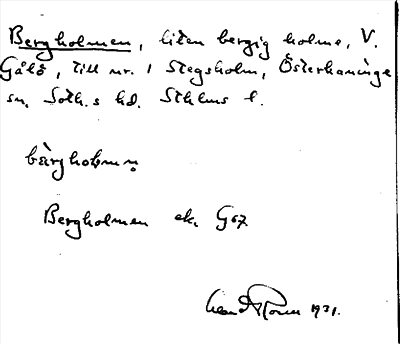 Bergholmen, liten bergig holme, V.
Gålö, till nr. 1 Stegsholm, Österhaninge
sn. Soth.s hd. Sthlms l.
bàrgholmen
Bergholmen ek. G67
1931.